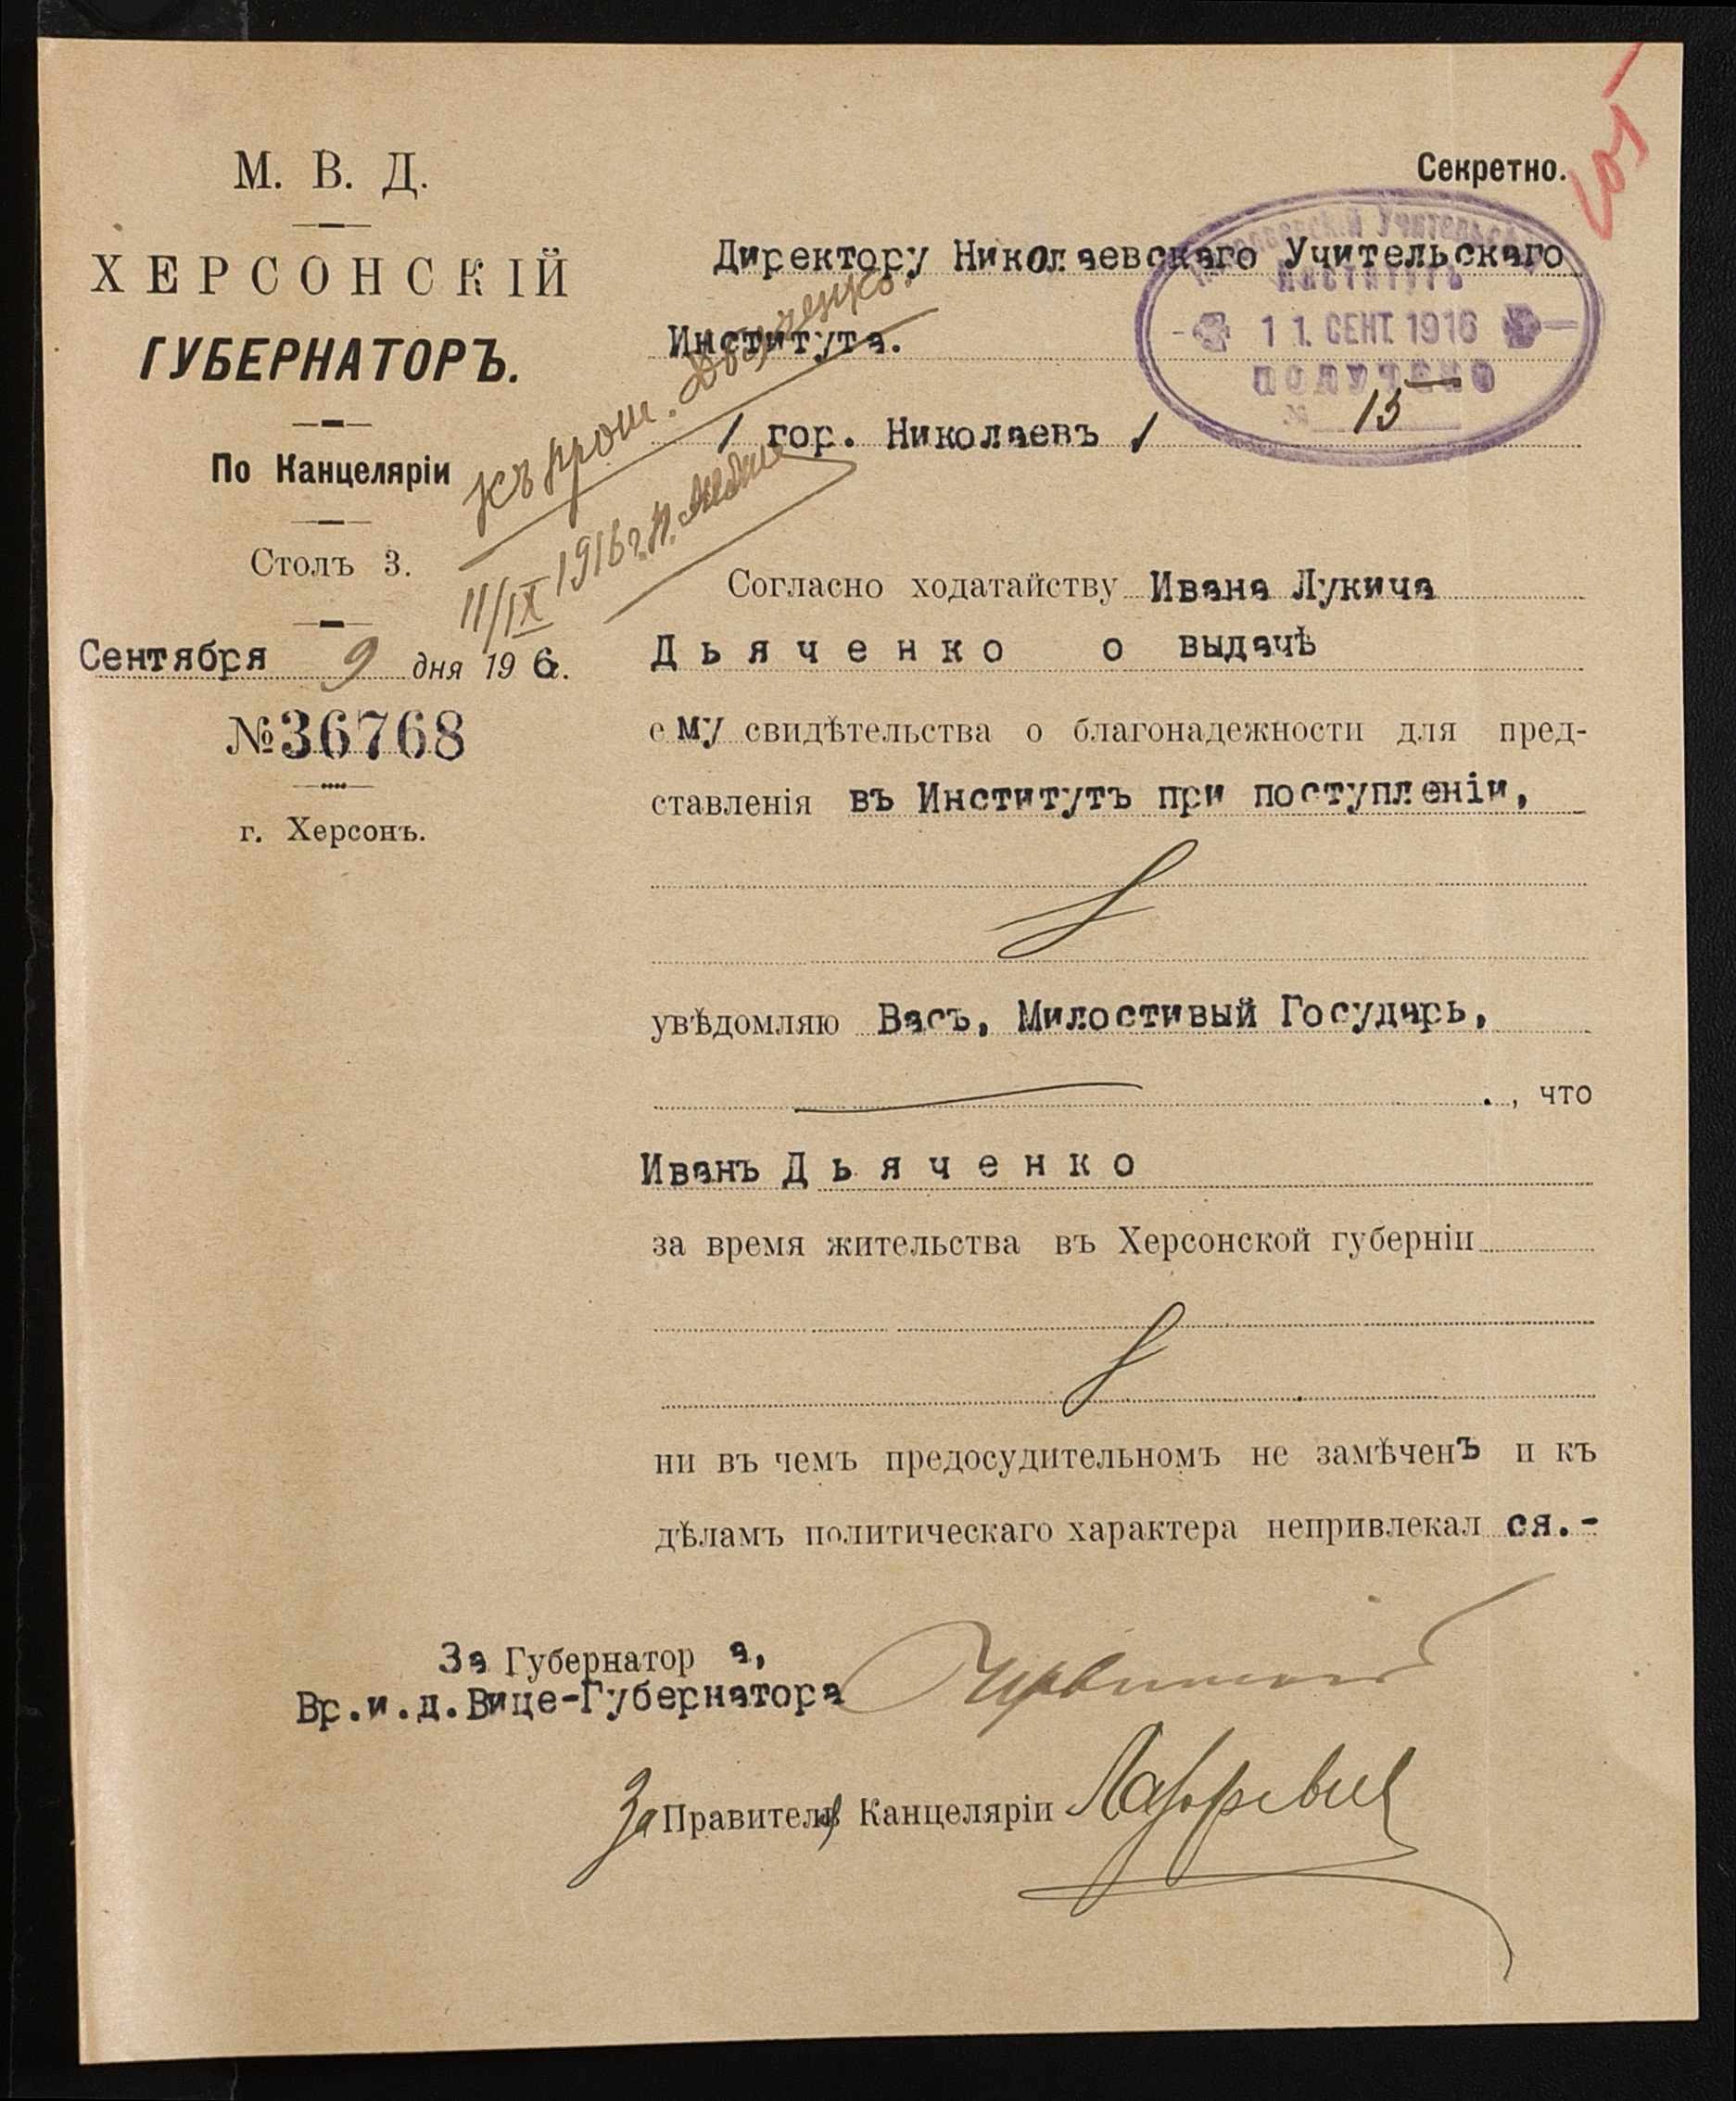 М. В. Д.
ХЕРСОНСКІЙ
ГУБЕРНАТОРЪ.
По Канцеляріи
Столъ 3.
Сентября 9 дня 19 6.
№ 36768
г. Херсонъ.
Секретно.
105
Директору Николаевскаго Учительскаго
Института.
/ гор. Николаевъ /
Учительскій
Институтъ
11 СЕНТ. 1916
ПОЛУЧЕНО
№ 15
Къ прош. Дьяченко.
11/IX 1916 г.
Согласно ходатайству Ивана Лукича
Дьяченко о выдачѣ
ему свидѣтельства о благонадежности для пред-
ставленія въ Институтъ при поступленіи,
увѣдомляю Васъ, Милостивый Государь,
., что
Иванъ Дьяченко
за время жительства въ Херсонской губерніи
ни въ чемъ предосудительномъ не замѣченъ и къ
дѣламъ политическаго характера непривлекал ся.-
За Губернатор а,
Вр.и.д.Вице-Губернатора
За Правителя Канцеляріи